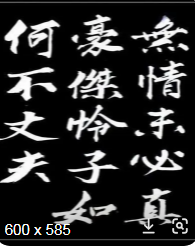 無情未必真
豪傑怜子如
何不丈夫
600 x 585